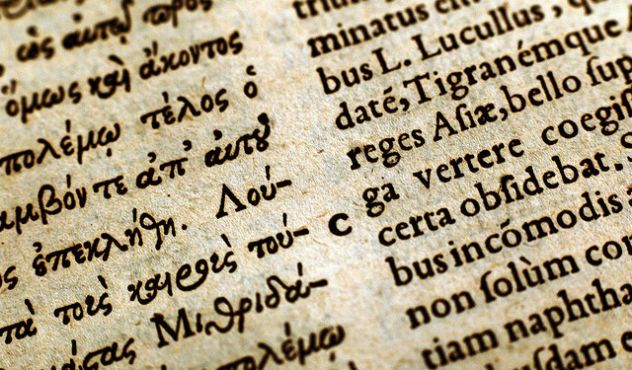 ὡς αὐτῷ πρὸς
ὅμως καὶ ἄκοντος
πολέμῳ τέλος ὁ
τε ἀπ' αὐτοῦ
ἐπεκλήθη. Λού-
τοὺς καιροὺς τού-
Μιθριδά-
πολέμῳ
minatus
bus L. Lucullus, q
daté, Tigranémque
reges Asiæ, bello sup
ga vertere coegis
C
certa obsidebat. S
bus incómodis
non solùm con
tiam naphtha
usdam e